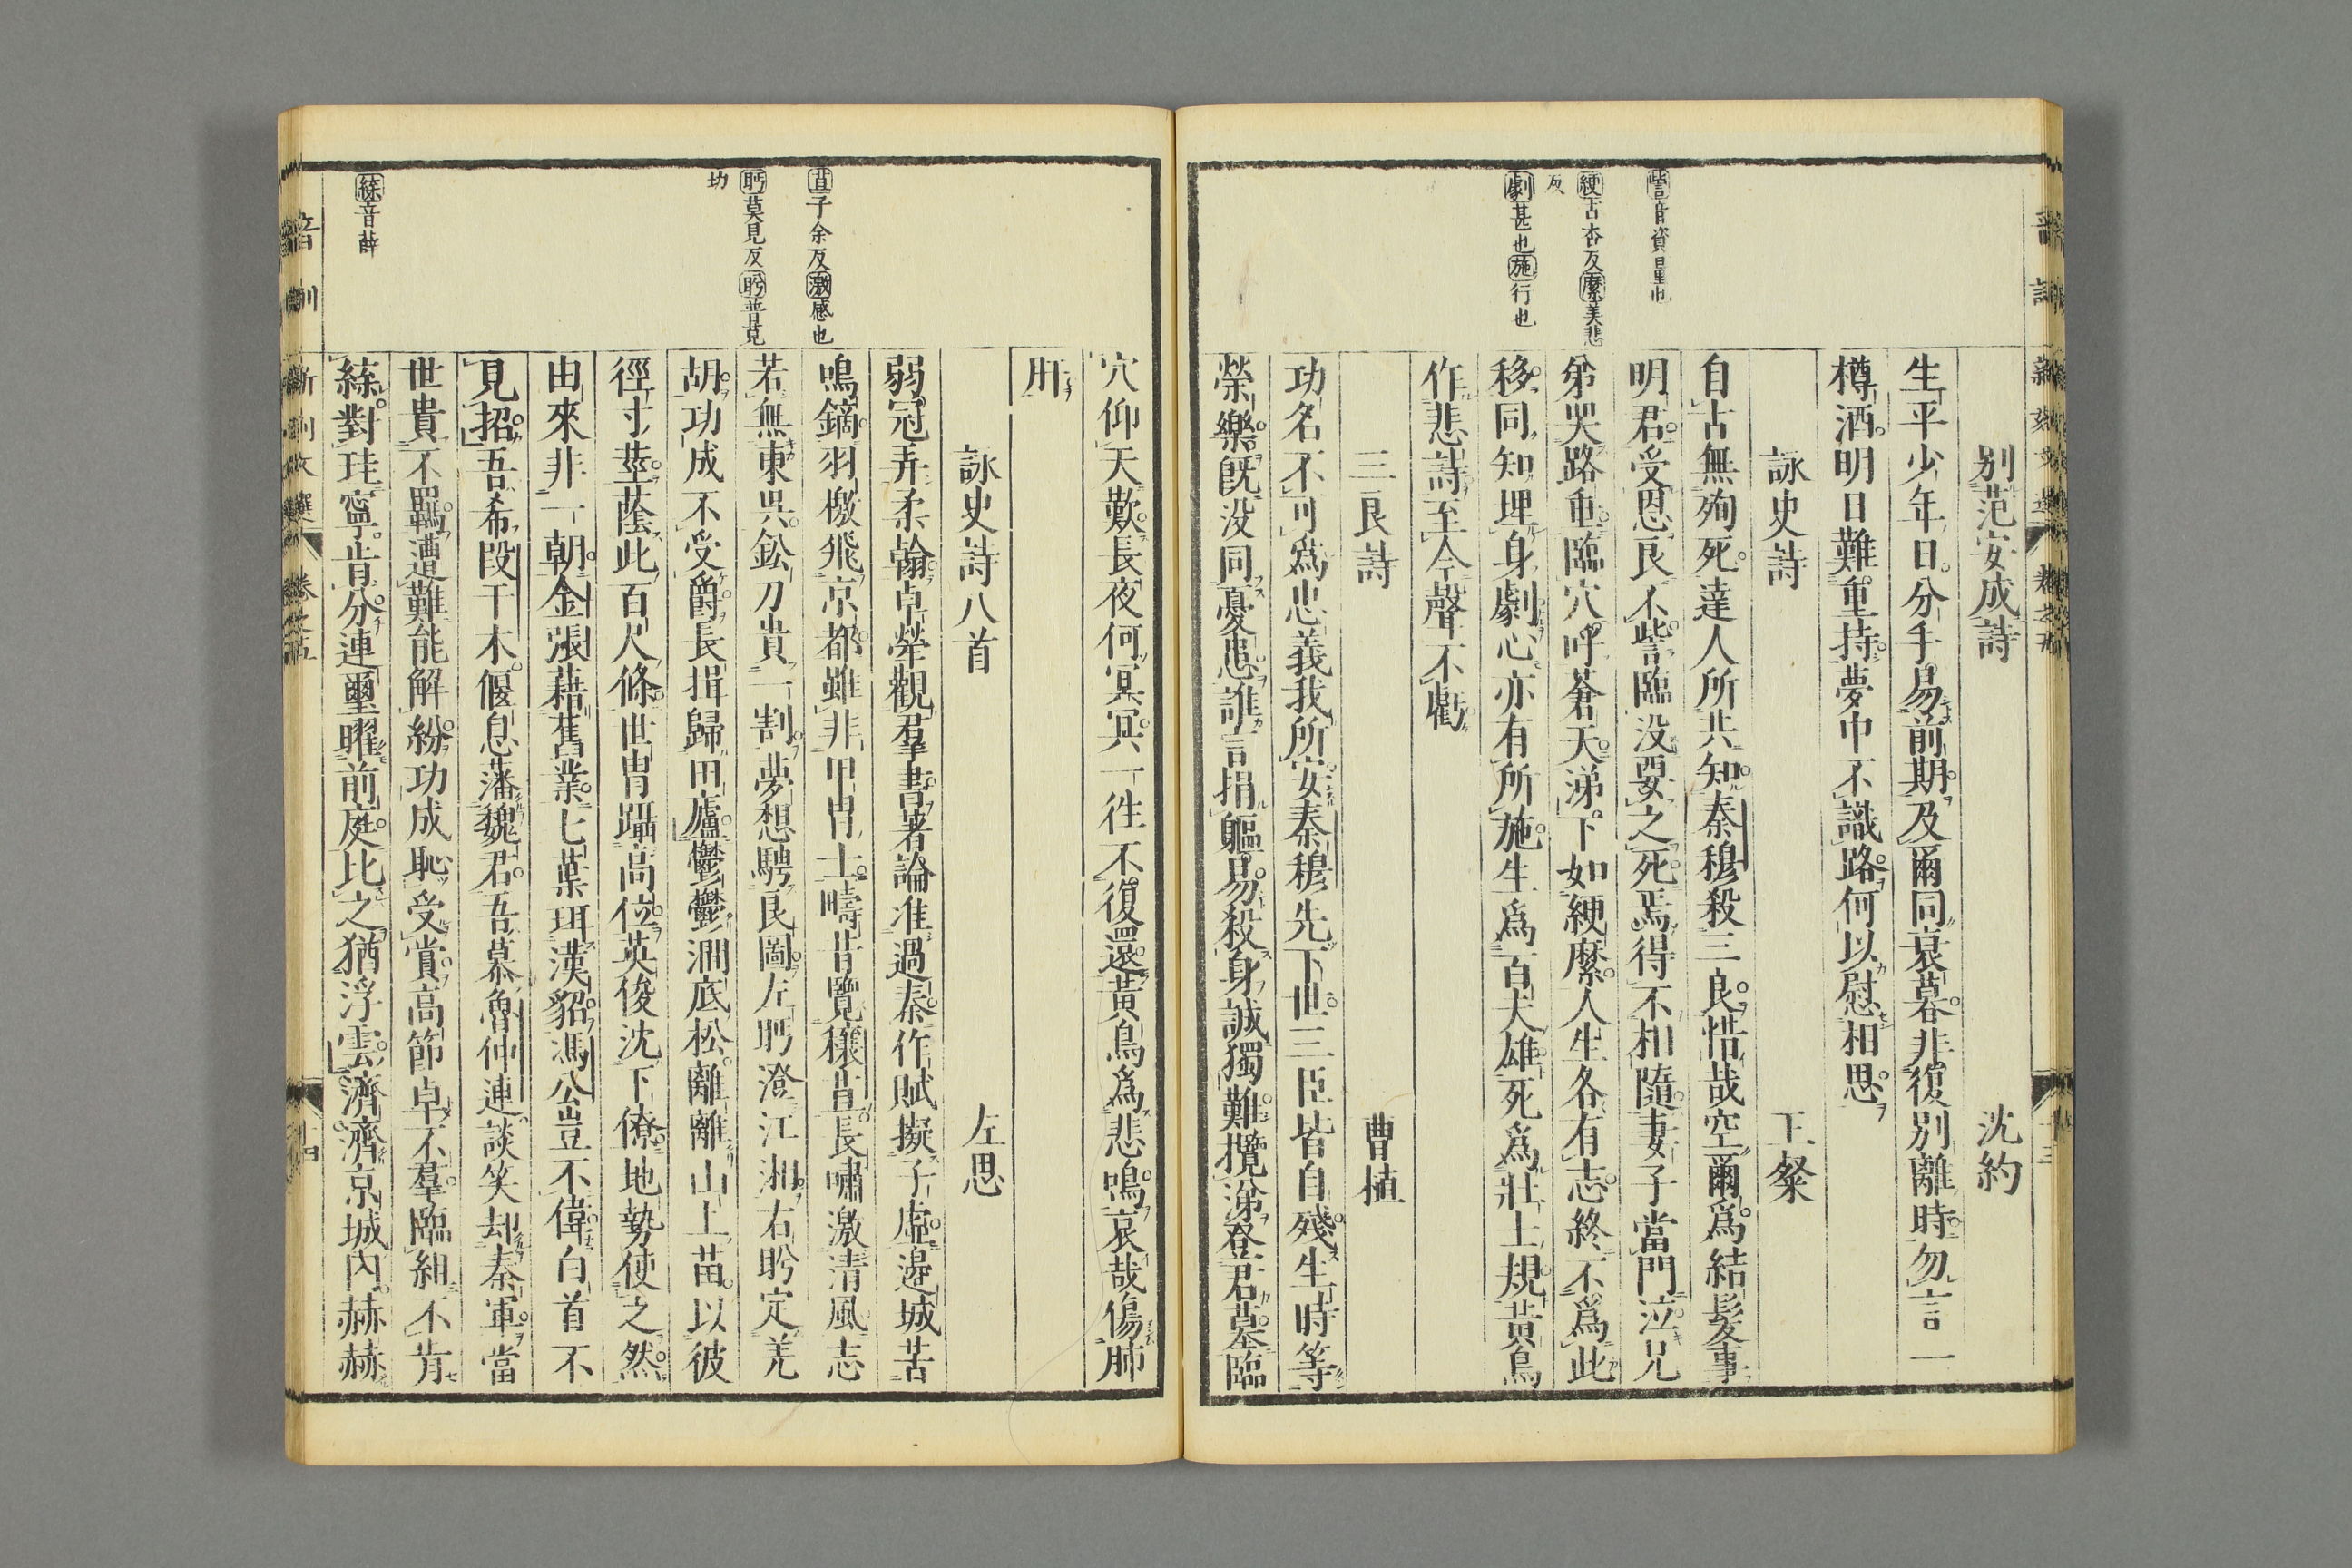 訾音資量也
綆古杏反縻美悲
反
劇甚也施行也
别范安成詩 沈約
生平少年日分手易前期及爾同衰暮非復别離時勿言一
樽酒明日難重持夢中不識路何以慰相思
詠史詩 王粲
自古無殉死達人所共知秦穆殺三良惜哉空爾爲結髮事
明君受恩良不訾臨没要之死焉得不相隨妻子當門泣兄
弟哭路垂臨穴呼蒼天涕下如綆縻人生各有志終不爲此
移同知埋身劇心亦有所施生爲百夫雄死爲壯士規黃鳥
作悲詩至今聲不虧
三良詩 曹植
功名不可爲忠義我所安秦穆先下世三臣皆自殘生時等
榮樂旣没同憂患誰言捐軀易殺身誠獨難攬涕登君墓臨
苴子余反激感也
眄莫見反盻普莧
切
緤音薛
穴仰天歎長夜何冥冥一徃不復還黃鳥爲悲鳴哀哉傷肺
肝
詠史詩八首 左思
弱冠弄柔翰卓犖觀羣書著論准過秦作賦擬子虛邉城苦
鳴鏑羽檄飛京都雖非甲冑士疇昔覽穰苴長嘯激清風志
若無東吳鈆刀貴一割夢想騁良圖左眄澄江湘右盻定羌
胡功成不受爵長揖歸田廬鬱鬱澗底松離離山上苗以彼
徑寸莖蔭此百尺條世冑躡高位英俊沈下僚地勢使之然
由來非一朝金張藉舊業七葉珥漢貂馮公豈不偉白首不
見招吾希段干木偃息藩魏君吾慕魯仲連談笑却秦軍當
世貴不羈遭難能解紛功成恥受賞高節卓不羣臨組不肯
緤對珪寧肯分連璽曜前庭比之猶浮雲濟濟京城內赫赫
音訓 新刻文選 卷之五 十四